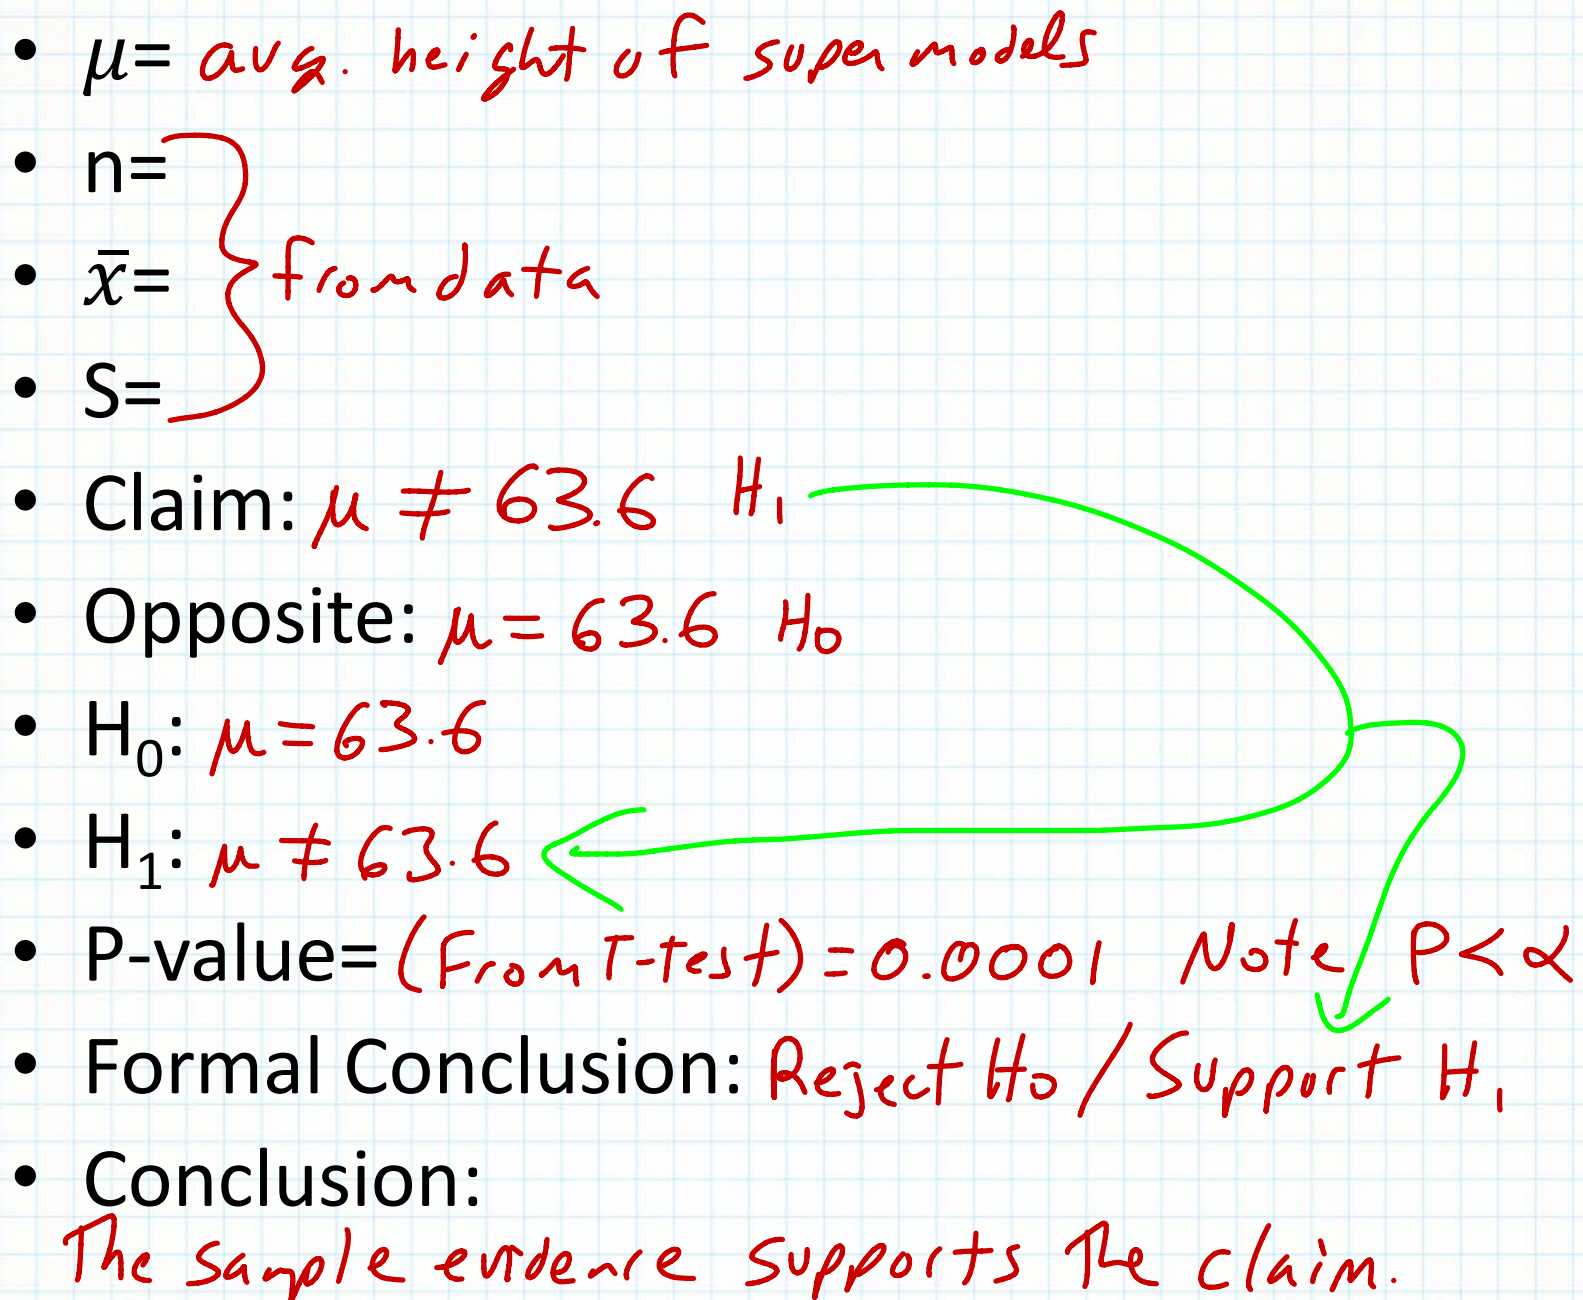 • μ= avg. height of supermodels
• n=
• x̄= } from data
• S=
• Claim: μ ≠ 63.6 H₁
• Opposite: μ = 63.6 H₀
• H₀: μ = 63.6
• H₁: μ ≠ 63.6
• P-value= (From T-test) = 0.0001 Note P < α
• Formal Conclusion: Reject H₀ / Support H₁
• Conclusion:
The sample evidence supports The claim.